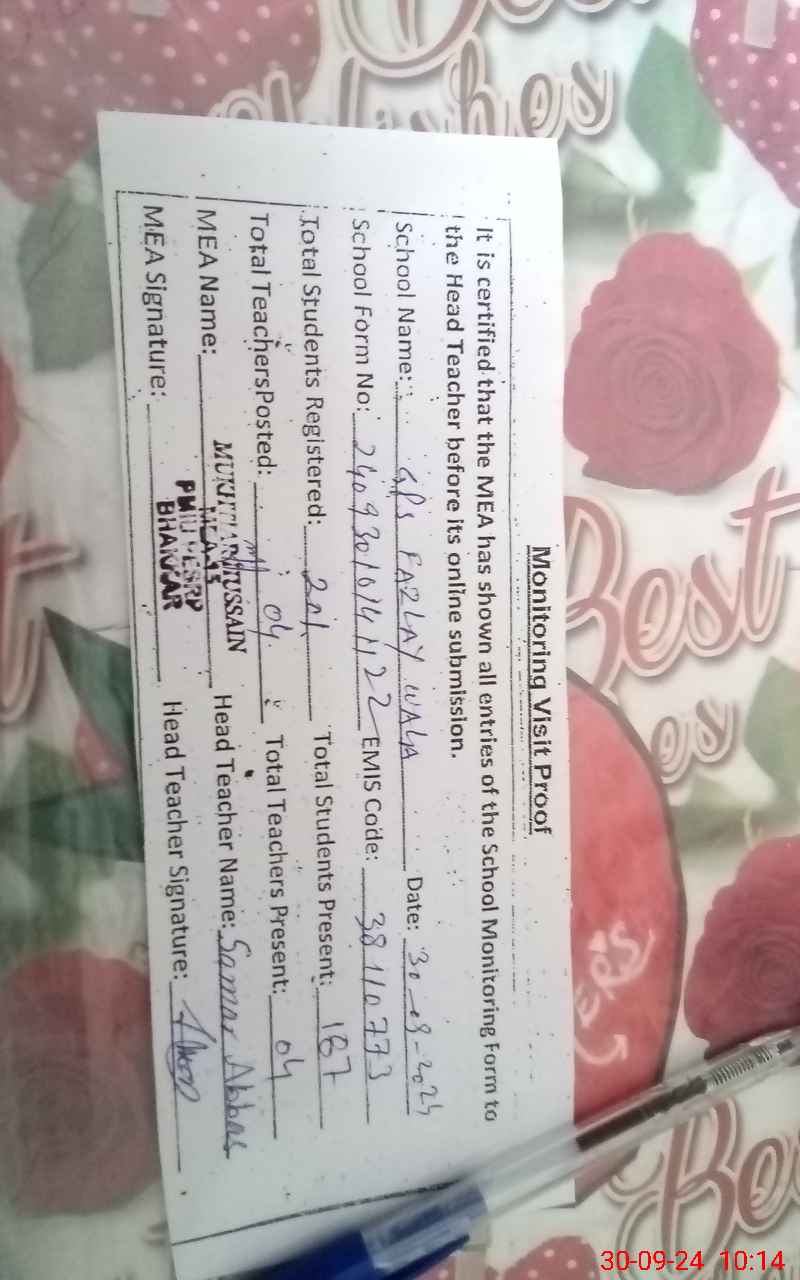 Monitoring Visit Proof
It is certified that the MEA has shown all entries of the School Monitoring Form to
the Head Teacher before its online submission.
School Name: GPS FAZLAY WALA Date: 30-09-2024
School Form No: 24093010141122 EMIS Code: 38110773
Total Students Registered: 201 Total Students Present: 187
Total TeachersPosted: 04 Total Teachers Present: 04
MEA Name: MUKHTIAR HUSSAIN Head Teacher Name: Samar Abbas
MEA Signature: Head Teacher Signature:
PMIU PESRP
BHAKKAR
Best
Wishes
Best
Wishes
Best
30-09-24 10:14